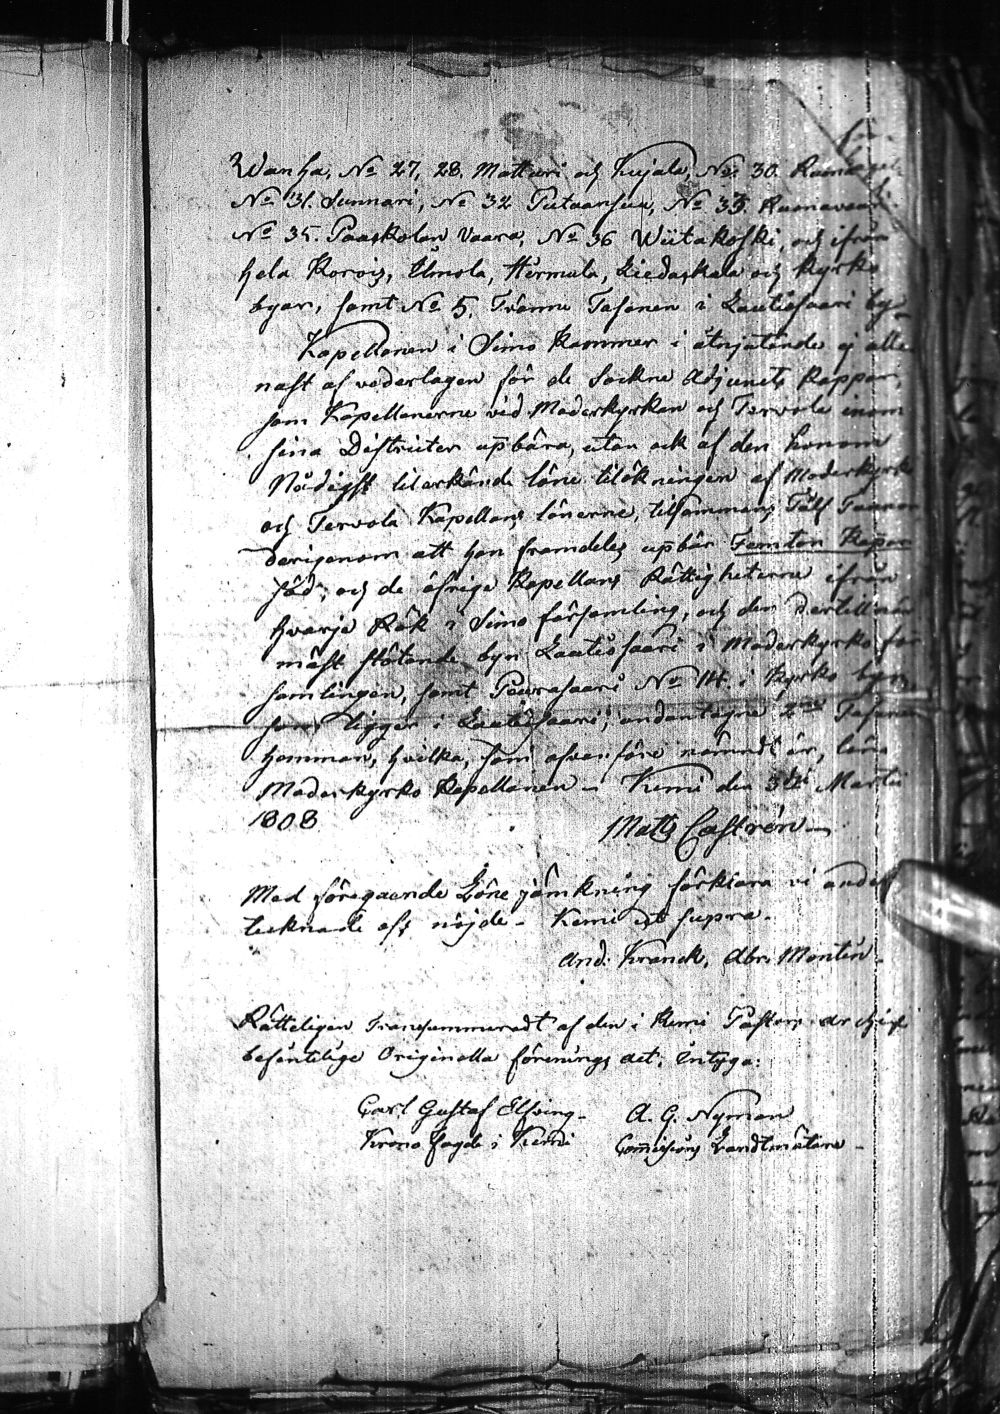 Wanha, No 27, 28. Mattari och Kujala, No 30.
No 31. Sunnari, No 32 Putaansuu, No 33. Ruonavaara
No 35. Paaskolan Vaara, No 36 Wiitakoski, och ifrån
hela Korois, Ilmola, Hermula, Liedaskala och Kyrko
byar, samt No 5. Tvänne Tasanen i Lautiosaari by
Kapellanen i Simo kommer i åtnjutande ej alle
nast af vederlagen för de Sockne Adjuncts Kappar,
som Kapellanerne vid Moderkyrkan och Tervola inom
sina Districter upbära, utan ock af den honom
Nådigst tilerkände löne tilökningen af Moderkyrko
och Tervola Kapellans lönerne, tilsammans Tolf Tunnor
derigenom att han framdeles upbär Femton Kappar
Säd, och de öfrige Kapellans Rättigheterne ifrån
hvarje Rök i Simo församling, och den dertill när
mäst stötande byn Lautiosaari i Moderkyrko för
samlingen, samt Peurasaari No 14. i Kyrko byn,
som ligger i Lautiosaari, undantagne 2ne Tasanen
hemman, hvilka, som ofvanföre nämndt är, löna
Moderkyrko Kapellanen – Kemi den 3die Martii
1808 Matts Castrén –
Med föregaende Löne jämkning förklara vi under
tecknade oss nöjde – Kemi ut supra.
And. Kranck, Abr. Montin.
Rätteligen transsummeradt af den i Kemi Pastors archif
befintelige Originella förenings act, intyga:
Carl Gustaf Elfving – A. G. Nyman
Krono fogde i Kemi Comissions Landtmätare –